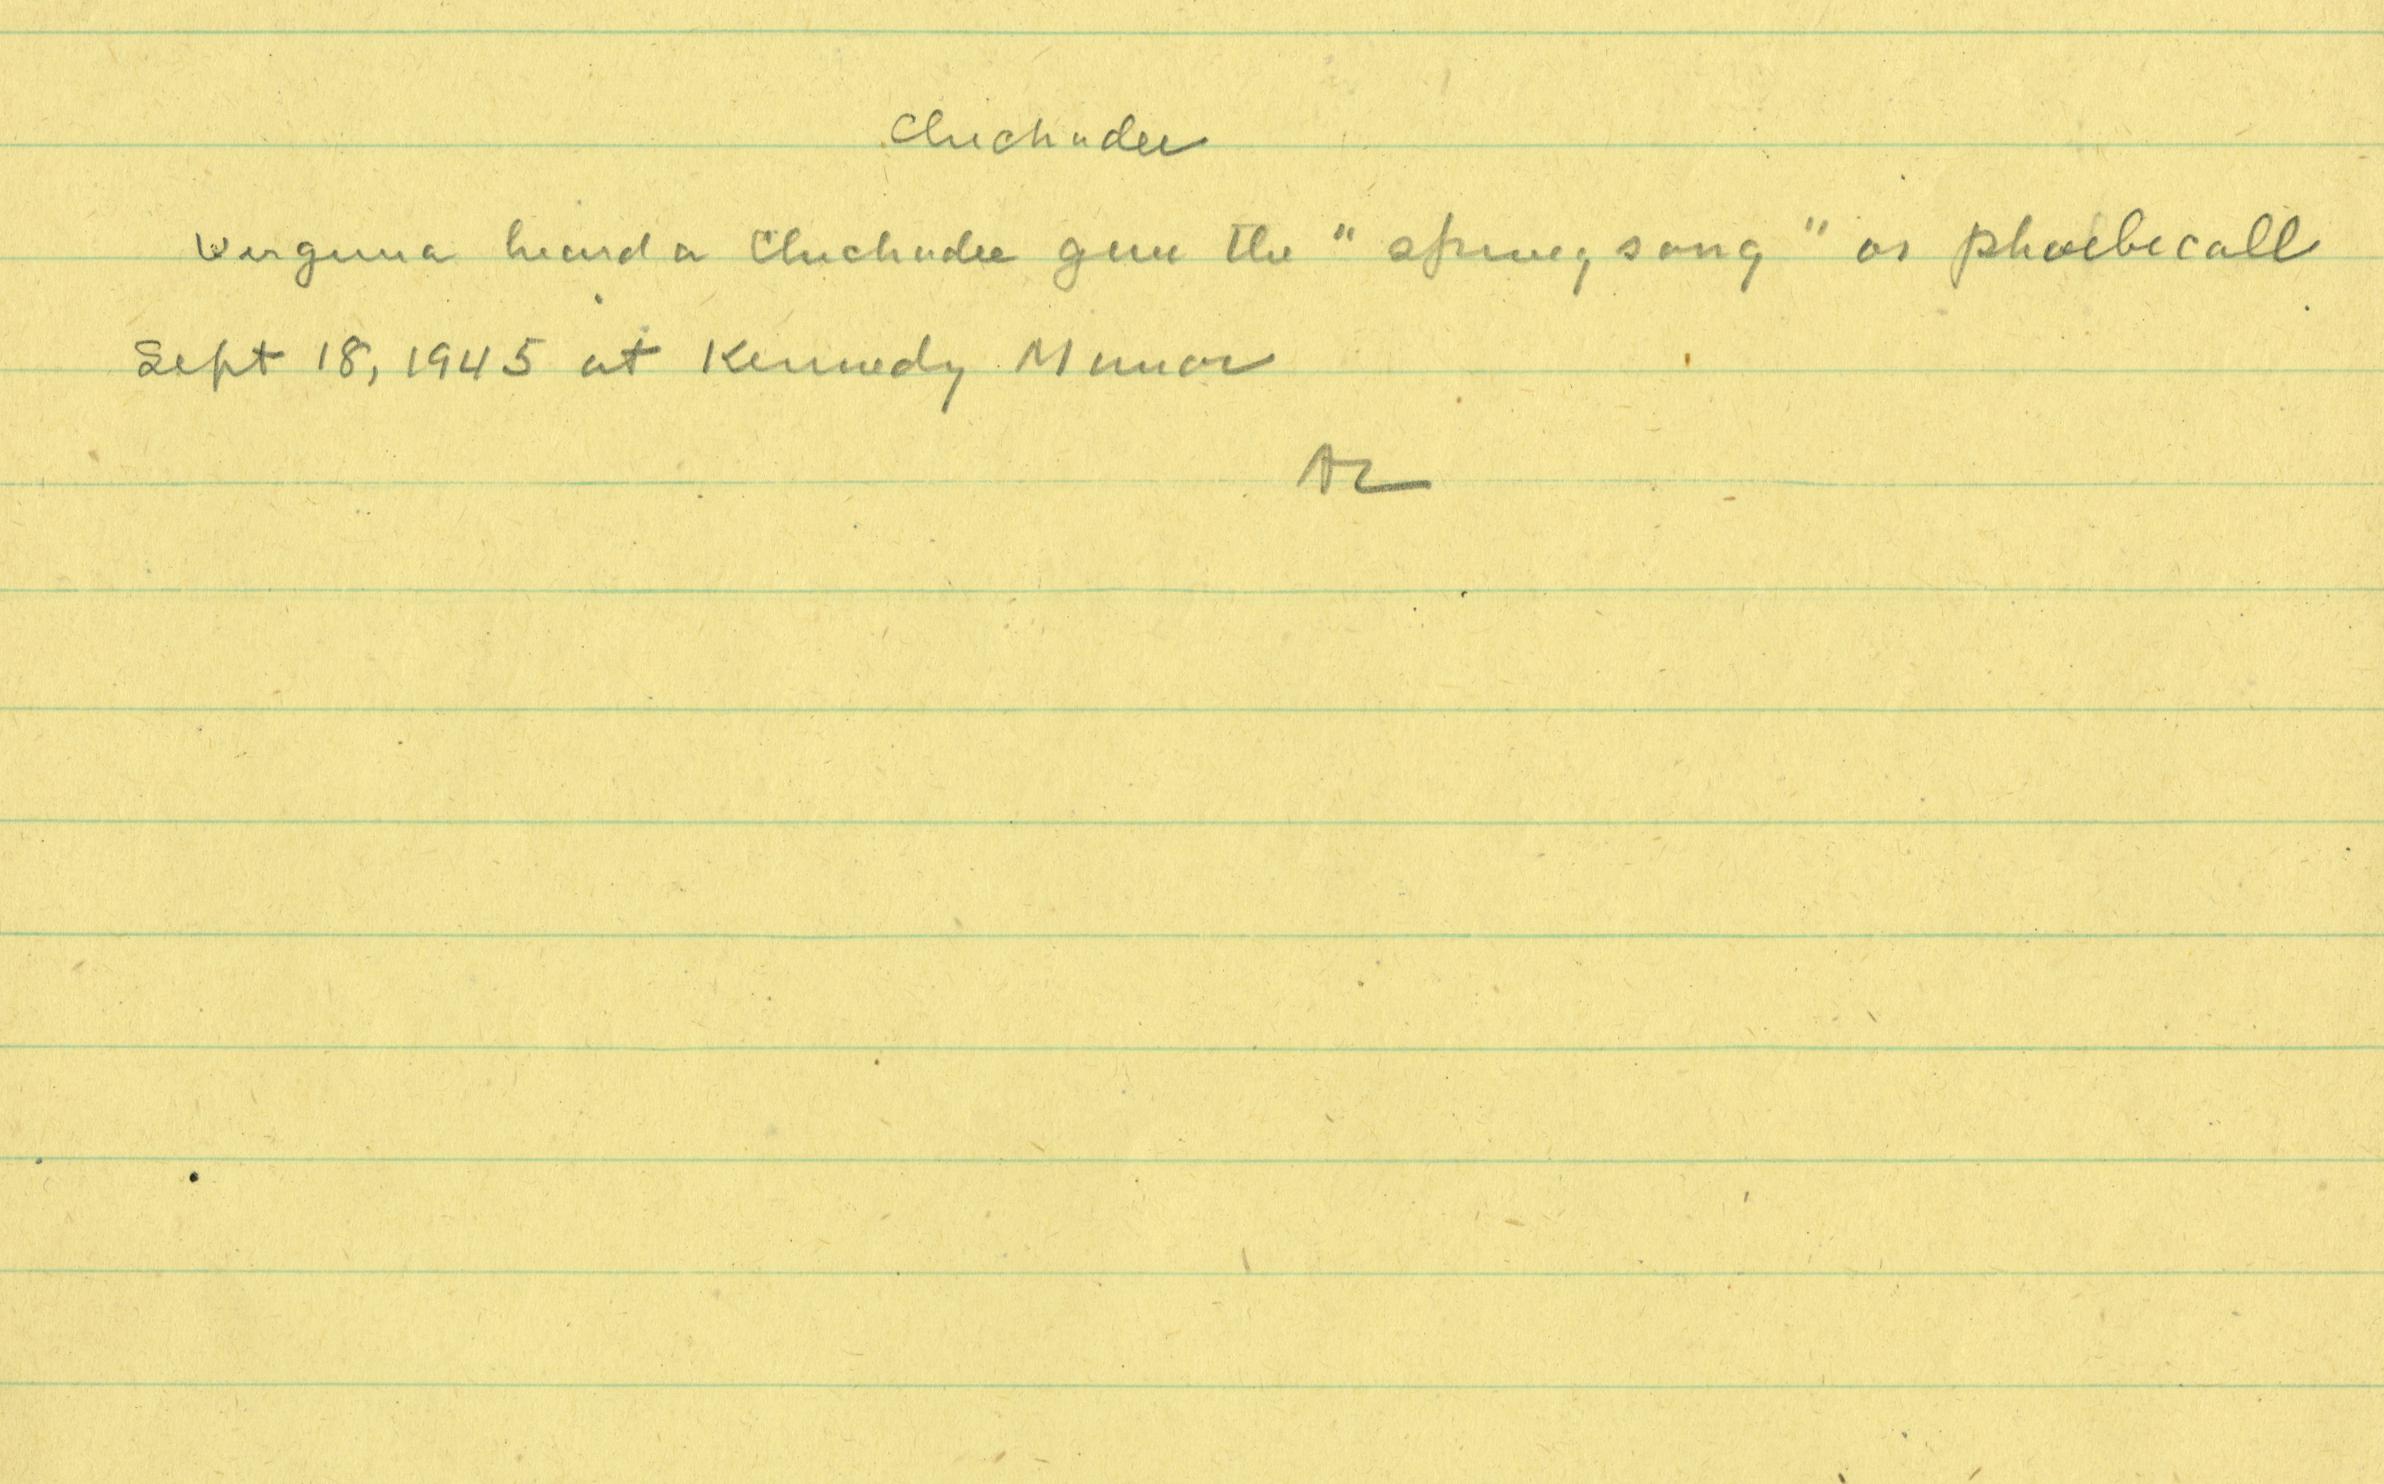 Chickadee
Virginia heard a Chickadee give the "spring song" or phoebe call
Sept 18, 1945 at Kennedy Manor
AL